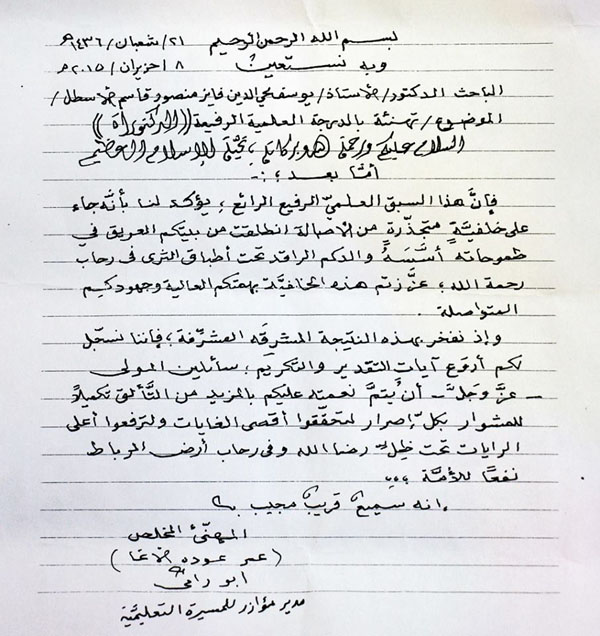 بسم الله الرحمن الرحيم ٢١/شعبان/١٤٣٦هـ
وبه نستعين ٨/حزيران/٢٠١٥م
الباحث الدكتور/الأستاذ/يوسف محي الدين فايز منصور قاسم الأسطل/
الموضوع/تهنئة بالدرجة العلمية الرفيعة ((الدكتوراة))
السلام عليكم ورحمة الله وبركاته، تحية الإسلام العظيم
أمّا بعد؛:-
فإنَّ هذا السبق العلميّ الرفيع الرائع، يؤكد لنا بأنَّه جاء
على خلفيَّةٍ متجذّرةٍ من الأصالة انطلقت من بيتكم العريق في
طموحاته أسَّسَهُ والدكم الراقد تحت أطباق الثرى في رحاب
رحمة الله، عزَّزتم هذه الخلفيَّة بهمتكم العالية وجهودكم
المتواصلة.
وإذ نفخر بهذه النتيجة المشرقة المشرِّفة، فإننا نسجّل
لكم أروع آيات التقدير والتكريم، سائلين المولى
- عزَّ وجلَّ - أن يُتمَّ نعمته عليكم بالمزيد من التَّألق تكميلاً
للمشوار بكلّ إصرار لتحقّقوا أقصى الغايات ولترفعوا أعلى
الرايات تحت ظلّ رضا الله وفي رحاب أرض الرباط
نفعًا للأمَّة ،،،
إنه سميع قريب مجيب
المهنّئ المخلص
(عمر عوده الأغا)
ابو رامي
مدير مؤازر للمسيرة التعليميَّة